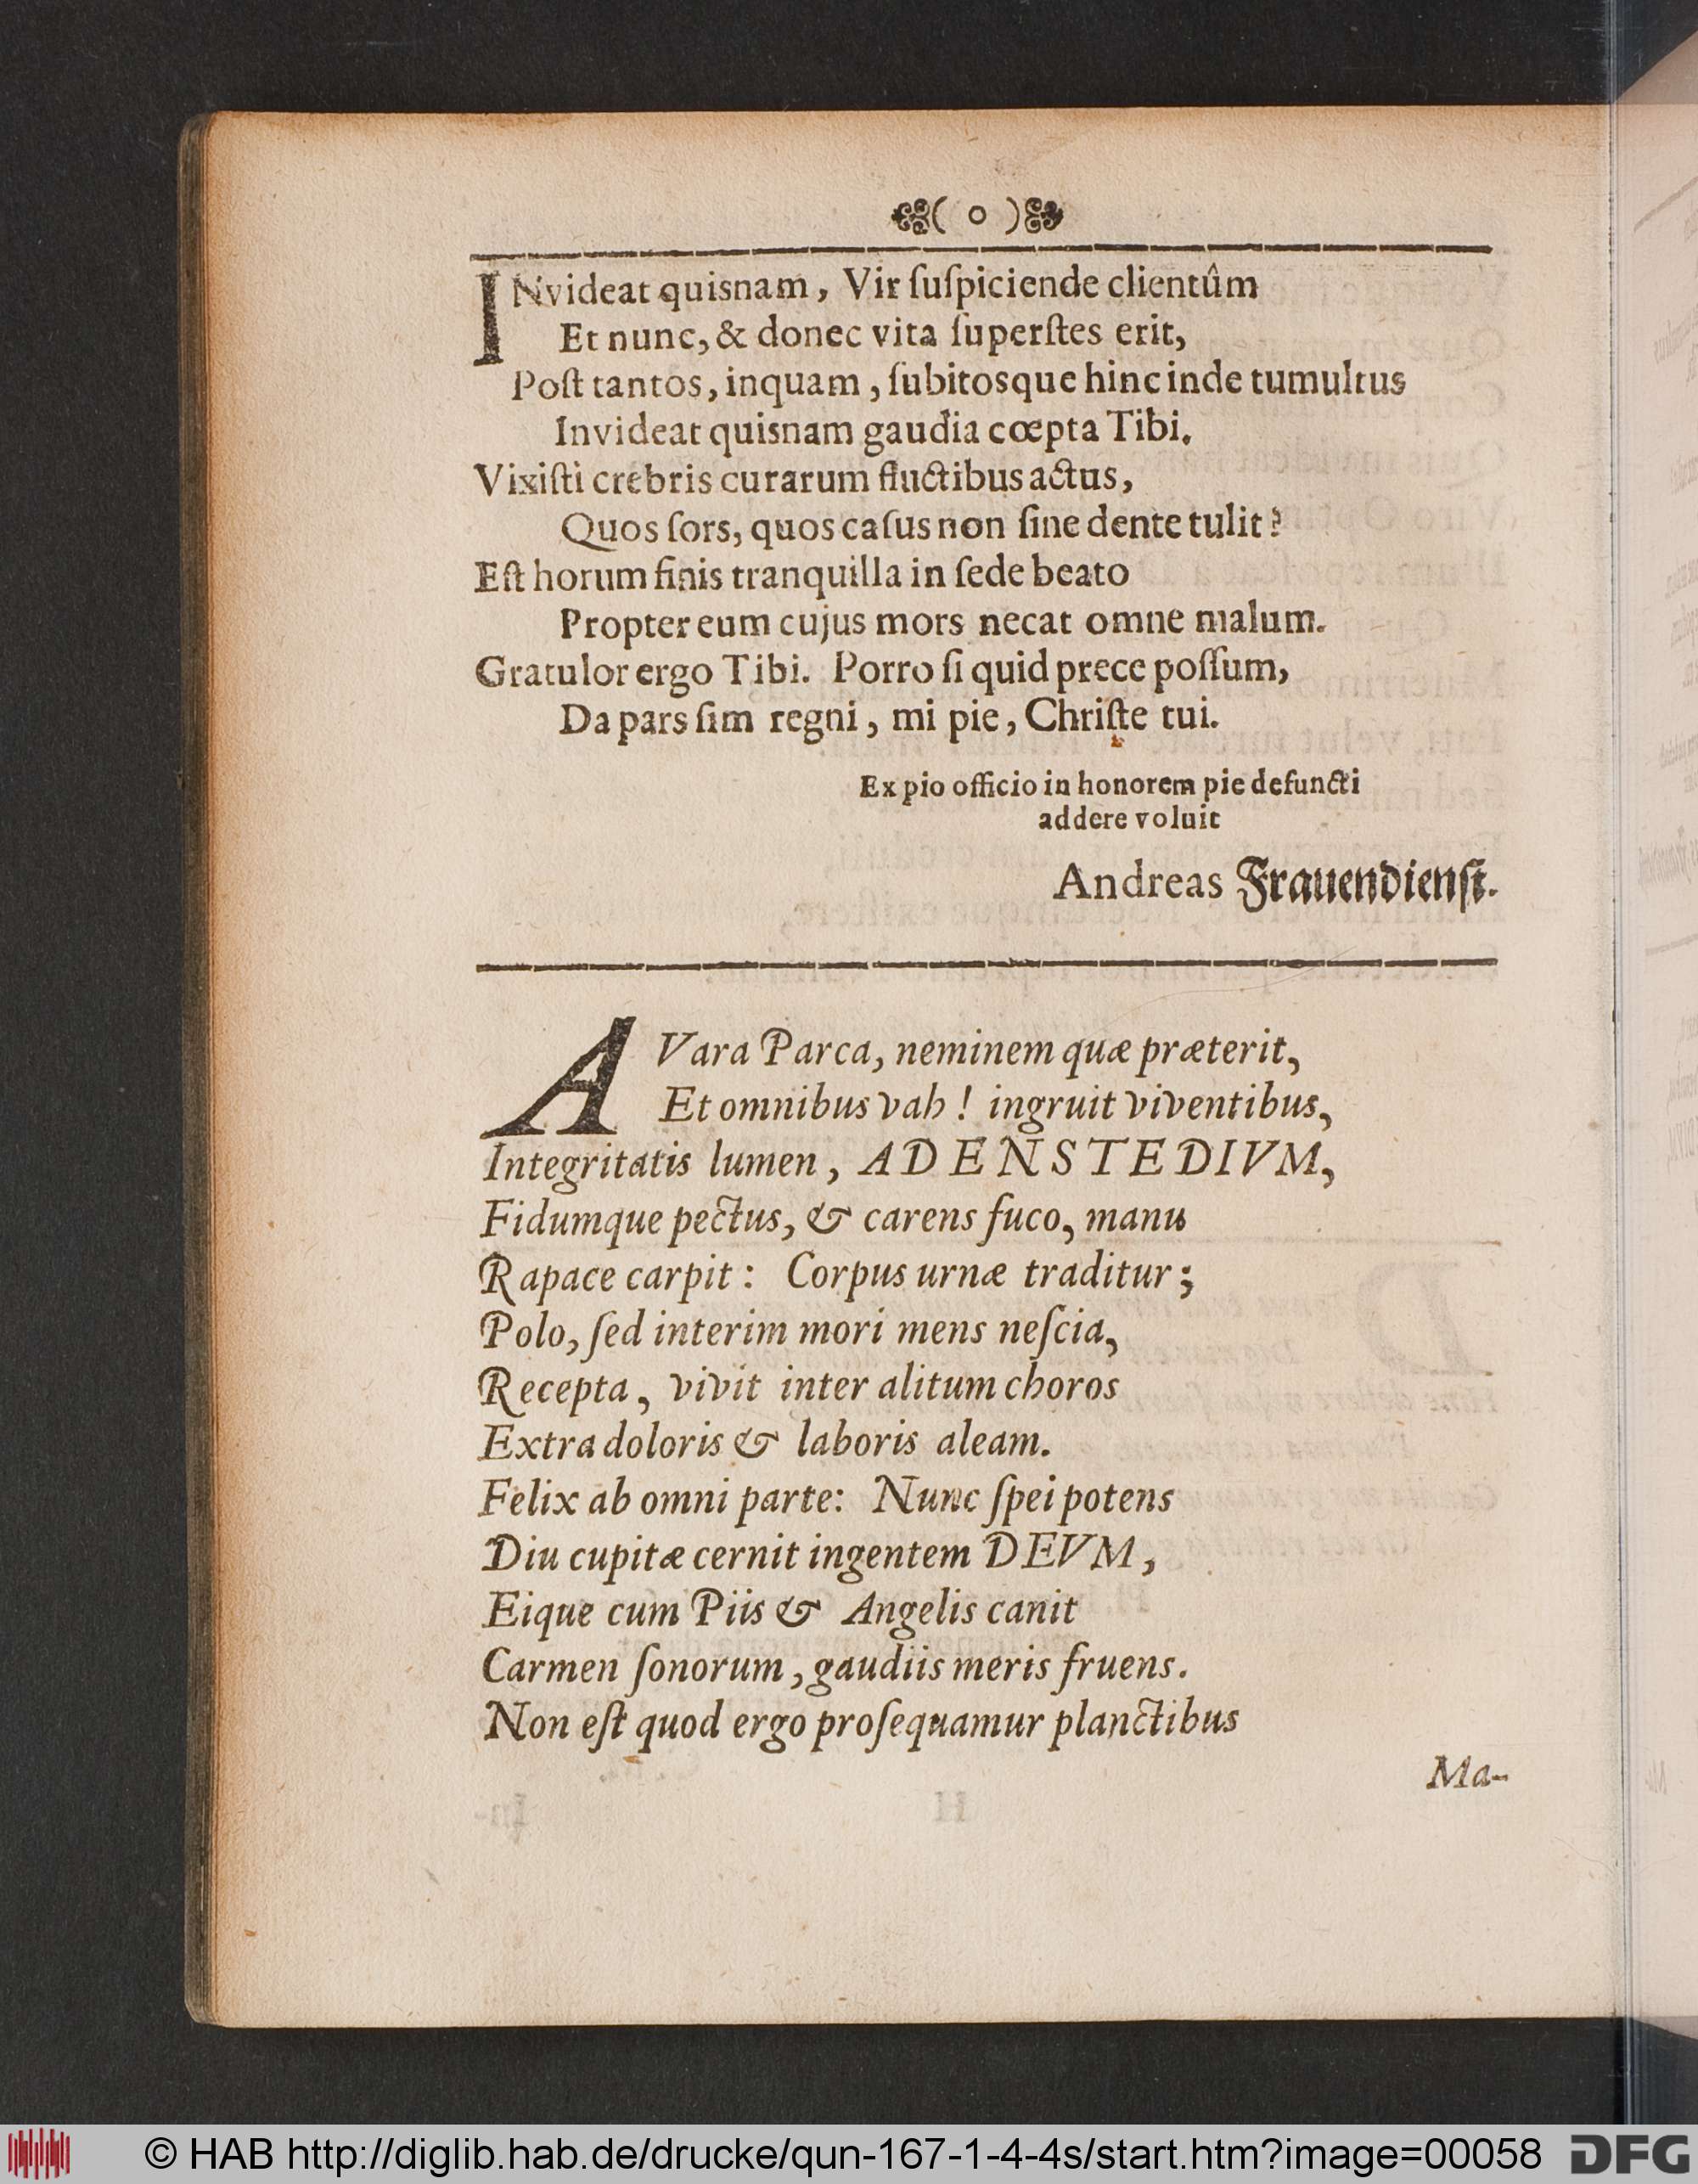 ( o )
INvideat quisnam, Vir ſuſpiciende clientûm
Et nunc, & donec vita ſuperſtes erit,
Poſt tantos, inquam, ſubitosque hinc inde tumultus
Invideat quisnam gaudia cœpta Tibi.
Vixiſti crebris curarum fluctibus actus,
Quos ſors, quos caſus non ſine dente tulit?
Eſt horum finis tranquilla in ſede beato
Propter eum cujus mors necat omne malum.
Gratulor ergo Tibi. Porro ſi quid prece poſſum,
Da pars ſim regni, mi pie, Chriſte tui.
Ex pio officio in honorem pie defuncti
addere voluit
Andreas Frauendienſt.
AVara Parca, neminem quæ præterit,
Et omnibus vah! ingruit viventibus,
Integritatis lumen, ADENSTEDIVM,
Fidumque pectus, & carens fuco, manu
Rapace carpit: Corpus urnæ traditur;
Polo, ſed interim mori mens neſcia,
Recepta, vivit inter alitum choros
Extra doloris & laboris aleam.
Felix ab omni parte: Nunc ſpei potens
Diu cupitæ cernit ingentem DEVM,
Eique cum Piis & Angelis canit
Carmen ſonorum, gaudiis meris fruens.
Non eſt quod ergo proſequamur planctibus
Ma-
© HAB http://diglib.hab.de/drucke/qun-167-1-4-4s/start.htm?image=00058 DFG